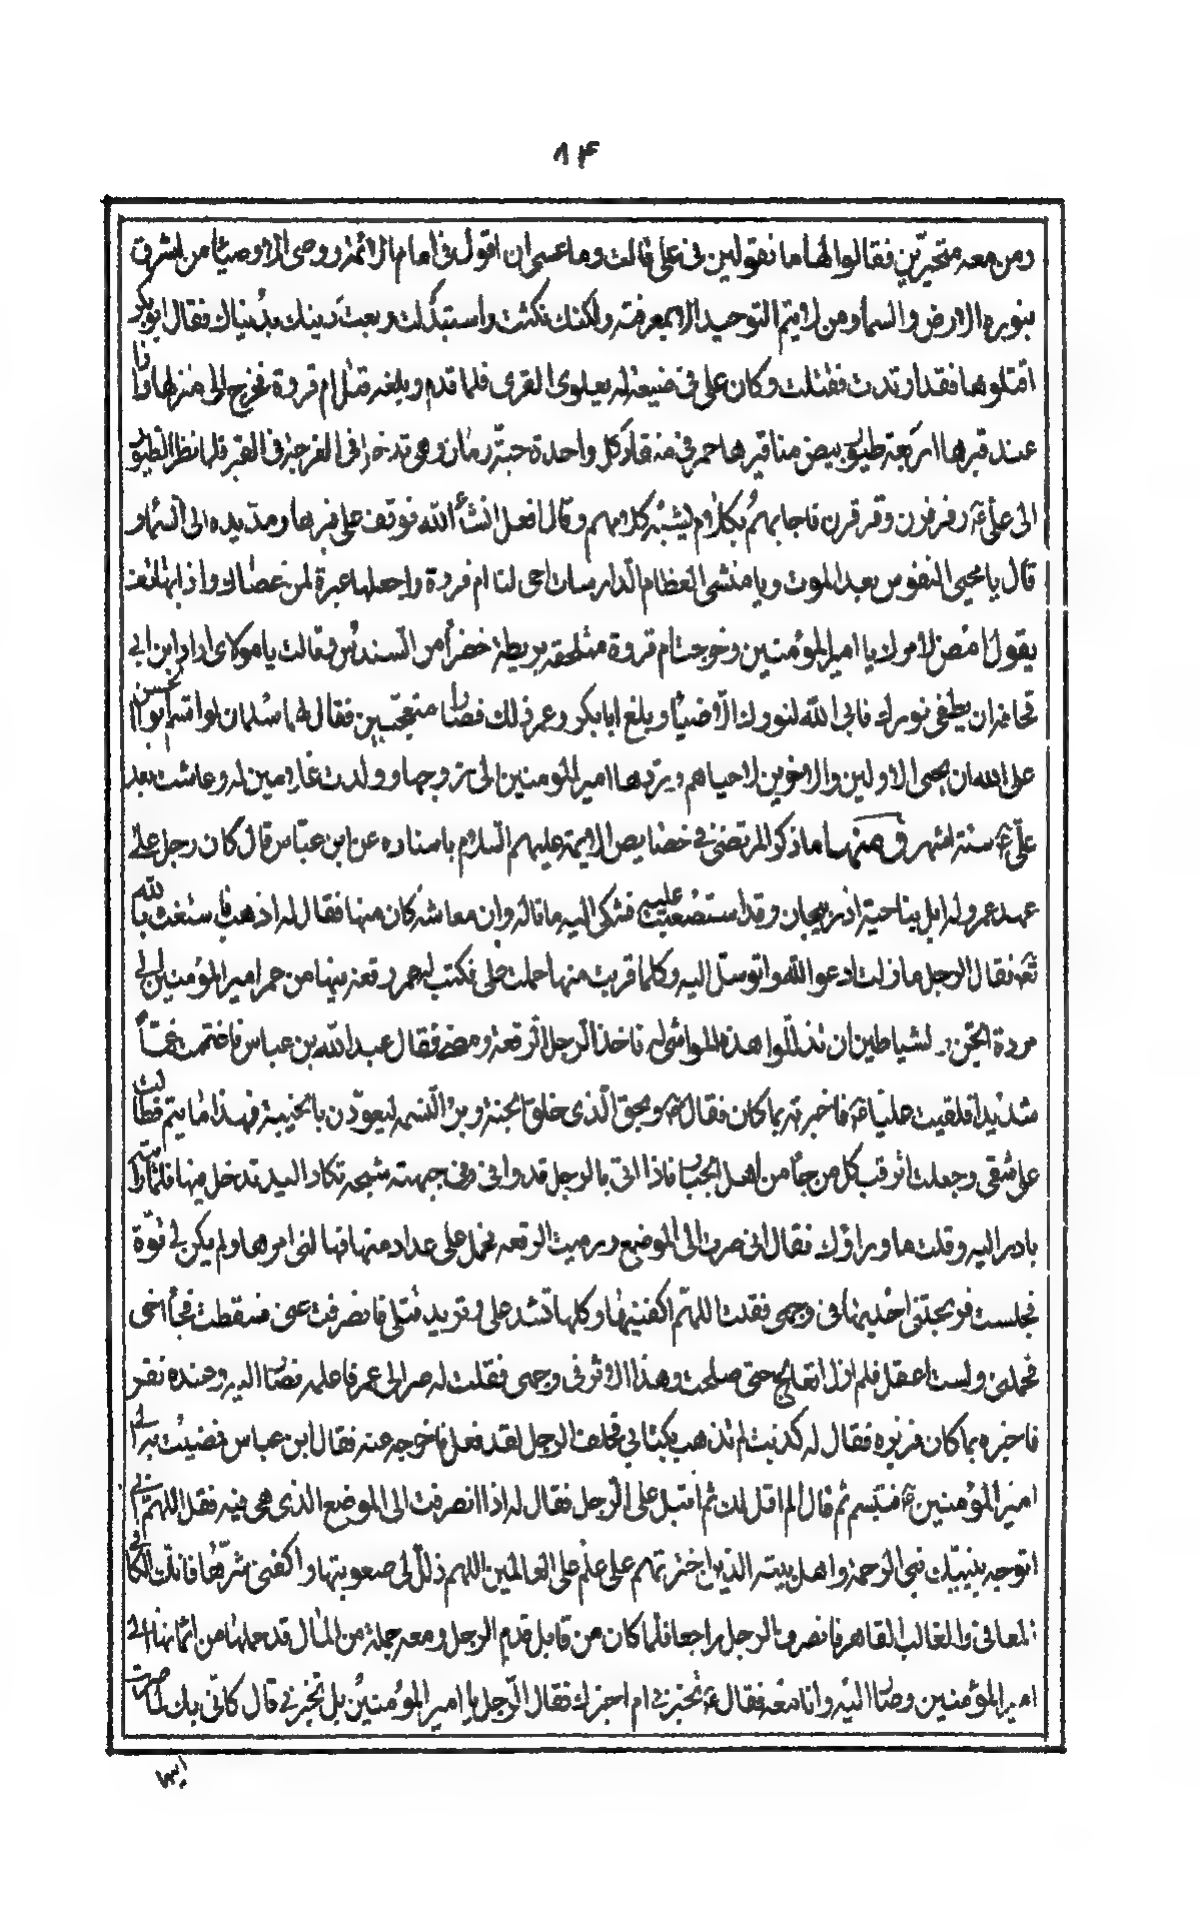 ۸۴
ومن معه متحيرين فقالوا لها ما تقولين في علي قالت وما عسى ان اقول في امام الائمة ووصي الاوصيا من اشرق
بنوره الارض والسما ومن لا يتم التوحيد الا بمعرفته ولكنك نكثت واستبدلت وبعت دينك بدنياك فقال ابو بكر
اقتلوها فقد ارتدت فقتلت وكان علي في ضيعة له بوادي القرى فلما قدم وبلغه قتل ام فروة فخرج الى منزلها واذا
عند قبرها اربعة طيور بيض مناقيرها حمر في منقار كل واحدة حبة رمان وهي تدخل في الفرجة في القبر فلما نظر الطيور
الى علي ع رفرفون وقرقرن فاجابهم بكلام يشبه كلامهم وقال افعل انشأ الله فوقف على قبرها ومد يده الى السما و
قال يا محيي النفوس بعد الموت ويا منشى العظام الدارسات احي لنا ام فروة واجعلها عبرة لمن عصاك واذا بهاتف
يقول امض لامرك يا امير المؤمنين وخرجت ام فروة متلحفة بريطة خضرأ من السندس وقالت يا مولاي اراد ابن ابي
قحافة ان يطفي نورك فابى الله لنورك الا ضيأ وبلغ ابا بكر وعمر ذلك فصارا متعجبين فقال لهما سلمان لو اقسم ابو الحسن
على الله ان يحيي الاولين والاخرين لاحياهم وردها امير المؤمنين الى زوجها وولدت غلامين له وعاشت بعد
علي ع ستة اشهر ومنها ما ذكر المرتضى في خصايص الايمة عليهم السلام باسناده عن ابن عباس قال كان رجل على
عهد عمر وله ابل بناحية اذربيجان وقد استصعبت عليه فشكى اليه ما ناله وان معاشه كان منها فقال له اذهب فاستغث بالله
تع فقال الرجل ما زلت ادعو الله واتوسل اليه وكلما قربت منها حملت على فكتب له عمر رقعة فيها من عمر امير المؤمنين الى
مردة الجن والشياطين ان تذللوا هذه المواشي له فاخذ الرجل الرقعة ومضى فقال عبد الله بن عباس فاغتممت غما
شديدا فلقيت عليا ع فاخبرته بما كان فقال ع وبحق الذي خلق الجنة وبرأ النسمة ليعودن بالخيبة فهذا ما بي فطالت
على شقتي وجعلت ارقب كل من جأ من اهل الجبال فاذا اتى بالرجل قد وافى وفي جبهته شجة تكاد اليد تدخل فيها فلما رايته
بادرت اليه وقلت ما ورائك فقال اني صرت الى الموضع ورميت الرقعة فحمل على عداد منها فهالني امرها ولم يكن لي قوة
فجلست فرمحتني احديها في وجهي فقلت اللهم اكفنيها وكلها تشد علي وتريد قتلي فانصرفت عني فسقطت فجأ اخي
فحملني ولست اعقل فلم ازل اتعالج حتى صلحت وهذا الاثر في وجهي فقلت له صر الى عمر فاعلمه فصار اليه وعنده نفر
فاخبره بما كان فزبره فقال له كذبت لم تذهب بكتابي فحلف الرجل لقد فعل فاخرجه عنه فقال ابن عباس فمضيت به الى
امير المؤمنين ع فتبسم ثم قال الم اقل لك ثم اقبل على الرجل فقال له اذا انصرفت الى الموضع الذي هي فيه فقل اللهم اني
اتوجه بنبيك نبي الرحمة واهل بيته الذين اخترتهم على علم على العالمين اللهم ذلل لي صعوبتها واكفني شرها فانك الكافي
المعافي والغالب القاهر فانصرف الرجل راجعا فلما كان من قابل قدم الرجل ومعه جملة من المال قد حملها من اثمانها الى
امير المؤمنين وصار اليه وانا معه فقال ع تخبرني ام اخبرك فقال الرجل يا امير المؤمنين بل تخبرني قال كاني بك لما صرت
اليها